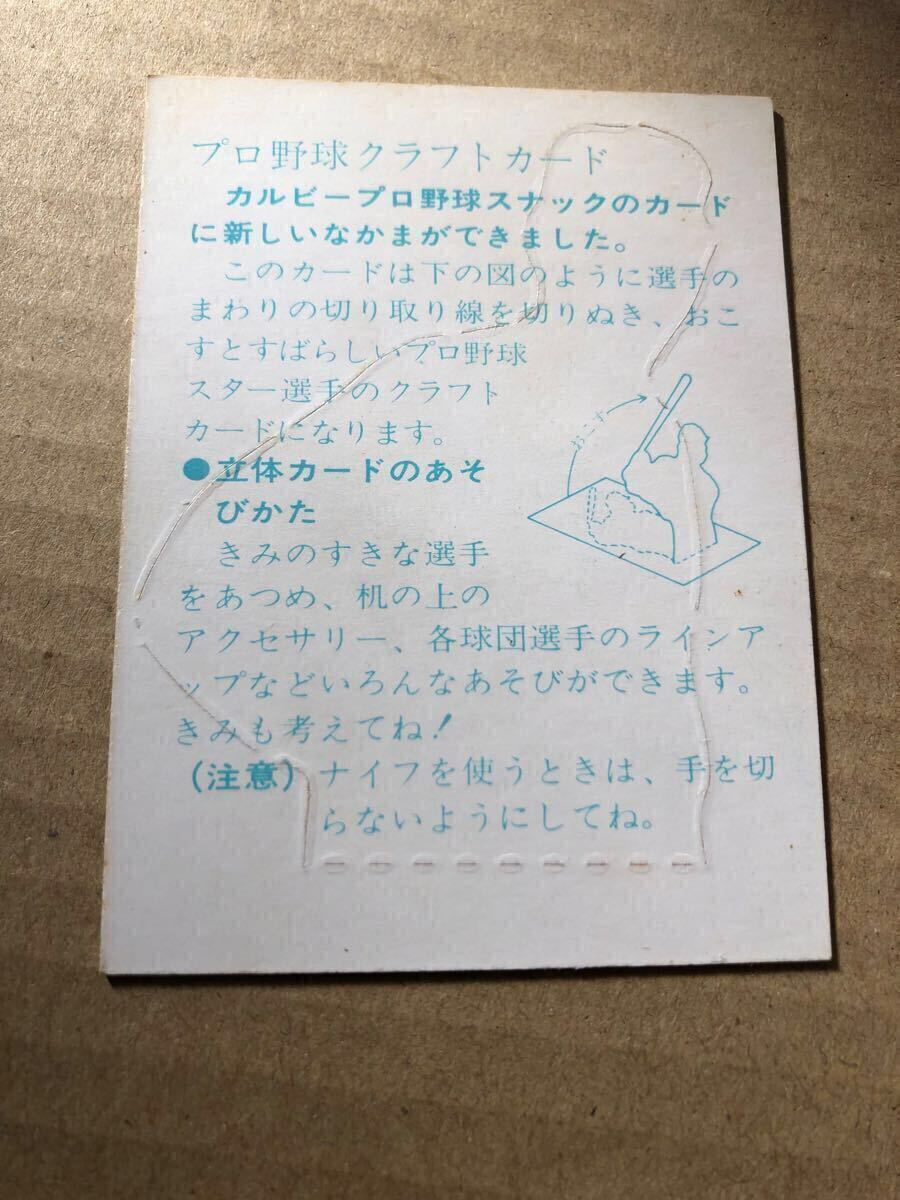 プロ野球クラフトカード
カルビープロ野球スナックのカード
に新しいなかまができました。
このカードは下の図のように選手の
まわりの切り取り線を切りぬき、おこ
すとすばらしいプロ野球
スター選手のクラフト
カードになります。
おこす
●立体カードのあそ
びかた
きみのすきな選手
をあつめ、机の上の
アクセサリー、各球団選手のラインア
ップなどいろんなあそびができます。
きみも考えてね！
(注意) ナイフを使うときは、手を切
らないようにしてね。